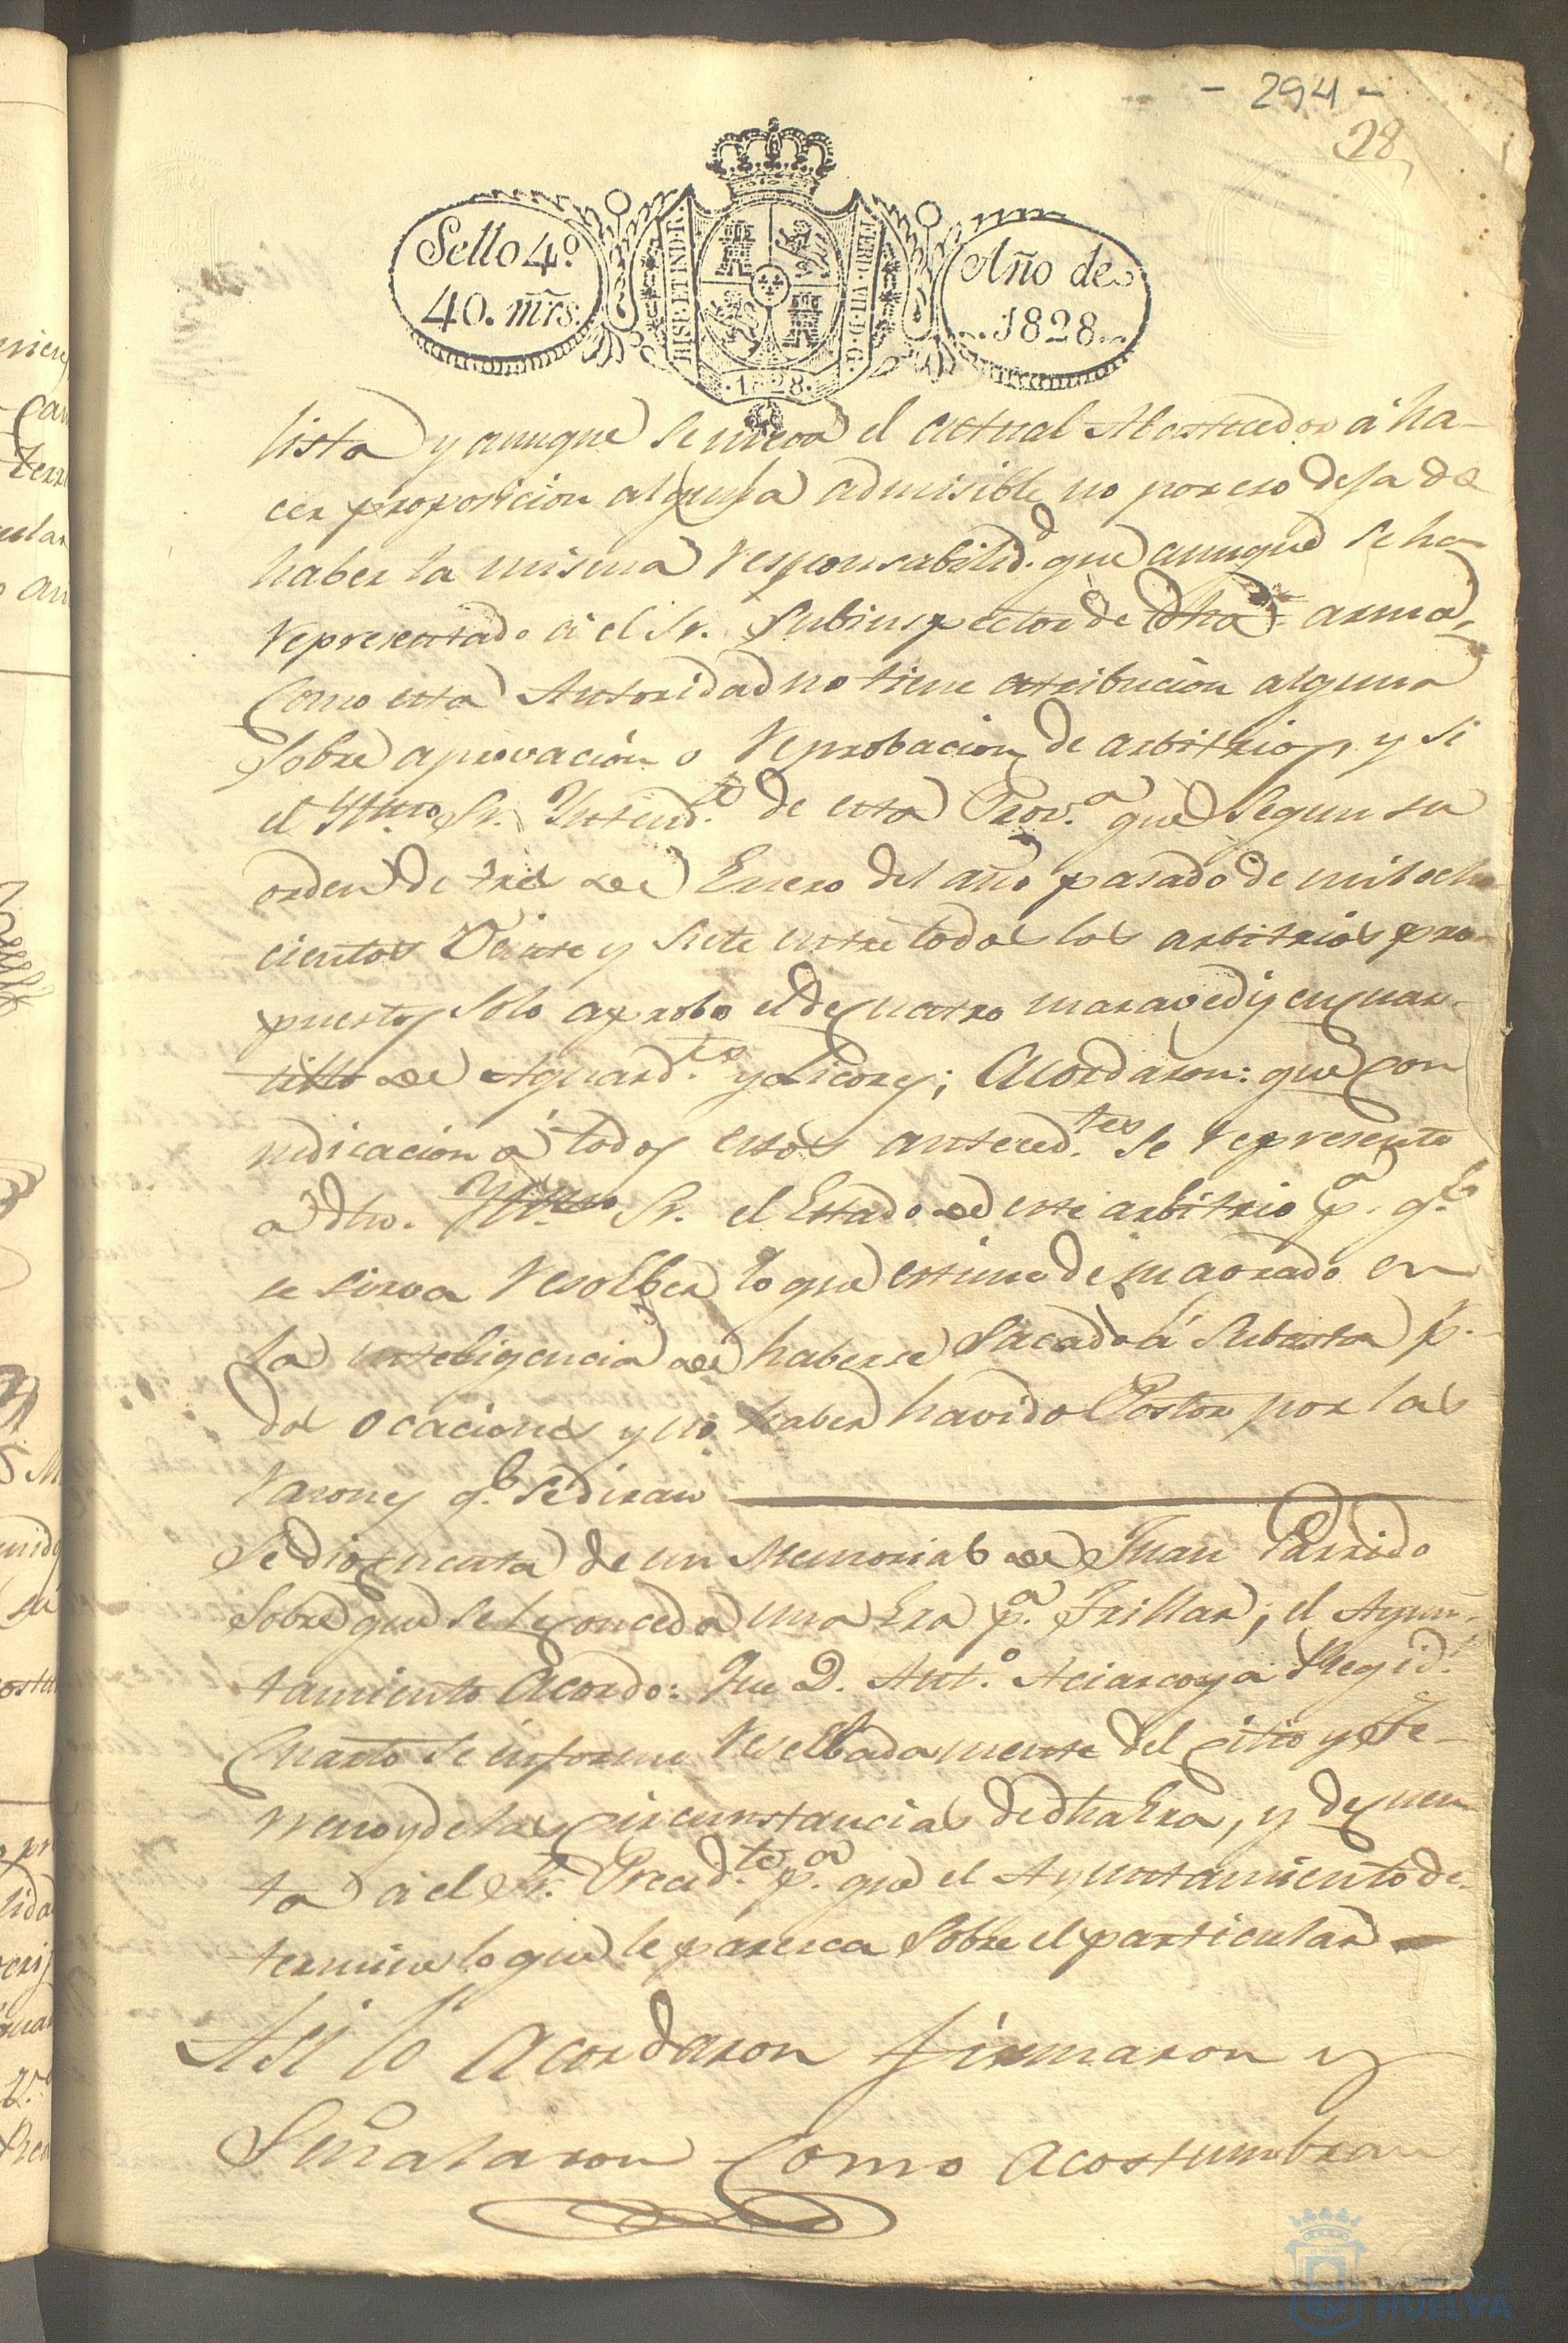 - 294 -
28
Sello 4º
40. mrs.
HISP. ET IND. R.
FERD. VII D. G.
1828.
Año de
1828
lista y aunque se niega el actual Abastecedor á ha-
cer proposicion alguna admisible no por eso deja de
haber la misma responsabilid.d que aunque se ha
representado á el Sr. Subinspector de dha arma,
como esta Autoridad no tiene atribucion alguna
sobre aprovacion o reprobacion de arbitrios, y si
el Yltmo Sr. Yntend.te de esta Prov.a que segun su
orden de tres de Enero del año pasado de mil ocho
cientos Veinte y Siete entre todos los arbitrios pro-
puestos solo aprobo el de cuatro maravedis en cuar-
tillo de Aguard.tes y Licores; Acordaron: que con
indicacion á todos estos anteced.tes se represente
a dho. Yltmo Sr. el Estado de este arbitrio p.a q.e
se sirva resolber lo que estime de su agrado en
la inteligencia de haberse sacado á Subasta p.
dos ocaciones y no haber havido Postor por las
razones q.e se diran
Se dio cuenta de un Memorial de Juan Garrido
sobre que se le conceda una Era p.a Trillar; el Ayun-
tamiento Acordo: Que D. Ant.o Aciarcoya Regid.r
Cuarto se informe reselbadamente del citio y te-
rreno y de las circunstancias de dha Era, y de cuen
ta á el Sr. Precid.te p.a que el Ayuntamiento de-
termine lo que le paresca sobre el particular
Asi lo Acordaron firmaron y
Señalaron como acostumbran
HUELVA